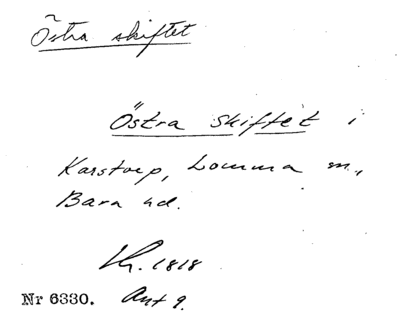 Östra skiftet
Östra skiftet i
Karstorp, Lomma m.,
Bara hd.
Kr. 1818
Nr 6330. Akt 9.